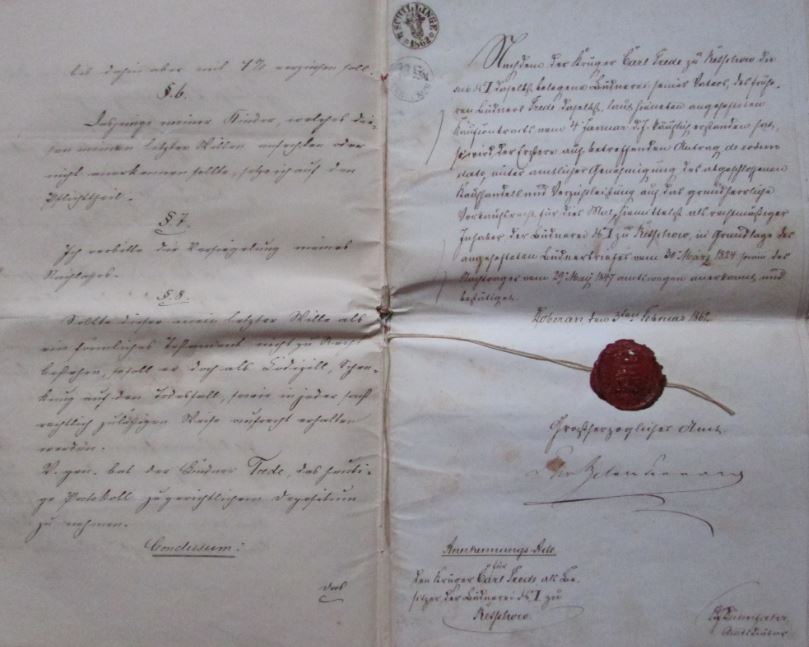 bis dahin aber mit 4 % verzinsen soll.
§. 6.
Dasjenige meiner Kinder, welches die-
sen meinen letzten Willen anfechten oder
nicht anerkennen sollte, setze ich auf den
Pflichttheil.
§. 7.
Ich verbitte die Versiegelung meines
Nachlasses.
§. 8.
Sollte dieser mein letzter Wille als
ein förmliches Testament nicht zu Recht
bestehen, so soll er doch als Codizill, Schen-
kung auf den Todesfall, sowie in jeder sonst
rechtlich zulässigen Weise aufrecht erhalten
werden.
V. gen. bat der Büdner Trede, das heuti-
ge Protokoll zu gerichtlichem Depositum
zu nehmen.
Conclusum:
das
SCHILLINGE
1862
Nachdem der Krüger Carl Trede zu Retschow die
sub No I daselbst belegene Büdnerei seines Vaters, des frühe-
ren Büdners Trede daselbst, laut hieneten angehefteten
Kaufcontracts vom 4 Januar d. J. käuflich erstanden hat,
so wird der Erstere auf betreffenden Antrag de eodem
dato unter amtlicher Genehmigung des abgeschlossenen
Kaufhandels und Verzichtleistung auf das grundherrliche
Vorkaufsrecht für dies Mal hiemittelst als rechtmäßiger
Inhaber der Büdnerei No I zu Retschow, in Grundlage des
angehefteten Büdnerbriefes vom 30 März 1824 sowie des
Nachtrages vom 29 Mai 1847 amtswegen anerkannt und
bestätiget.
Doberan den 3ten Februar 1862.
Großherzogliches Amt.
Anerkennungs-Acte
für
den Krüger Carl Trede als Be-
sitzer der Büdnerei No I zu
Retschow.